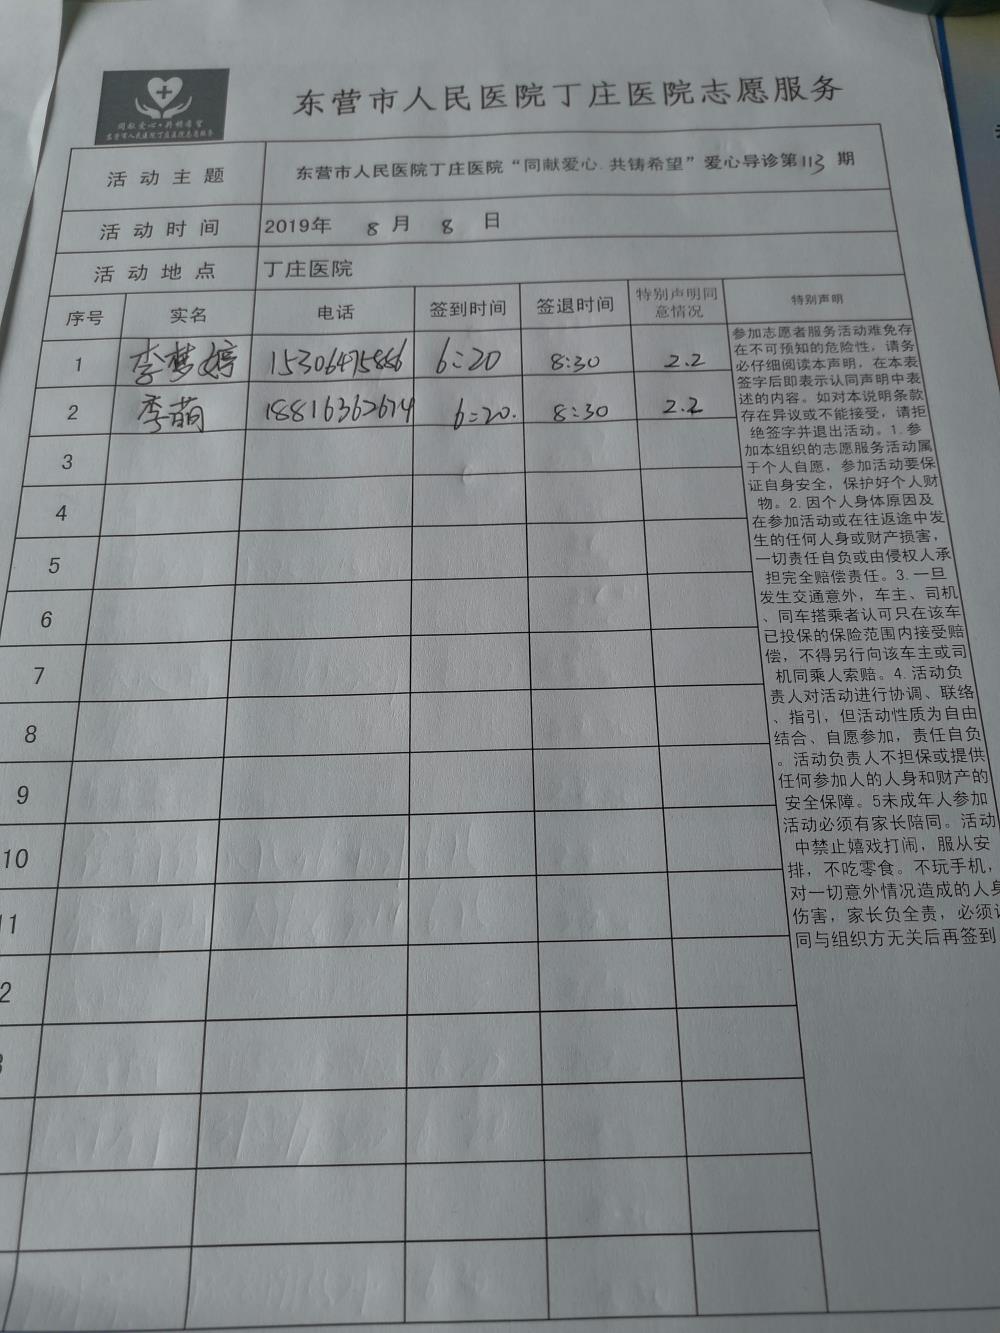 同献爱心·共铸希望
东营市人民医院丁庄医院志愿服务
东营市人民医院丁庄医院志愿服务
活动主题 东营市人民医院丁庄医院“同献爱心.共铸希望”爱心导诊第113期
活动时间 2019年 8月 8日
活动地点 丁庄医院
序号 实名 电话 签到时间 签退时间 特别声明同意情况 特别声明
1 李梦婷 15306475866 6:20 8:30 2.2
2 李萌 18816362674 6:20. 8:30 2.2
3
4
5
6
7
8
9
10
11
2
3
参加志愿者服务活动难免存
在不可预知的危险性，请务
必仔细阅读本声明，在本表
签字后即表示认同声明中表
述的内容。如对本说明条款
存在异议或不能接受，请拒
绝签字并退出活动。1.参
加本组织的志愿服务活动属
于个人自愿，参加活动要保
证自身安全，保护好个人财
物。2.因个人身体原因及
在参加活动或在往返途中发
生的任何人身或财产损害，
一切责任自负或由侵权人承
担完全赔偿责任。3.一旦
发生交通意外，车主、司机
、同车搭乘者认可只在该车
已投保的保险范围内接受赔
偿，不得另行向该车主或司
机同乘人索赔。4.活动负
责人对活动进行协调、联络
、指引，但活动性质为自由
结合、自愿参加，责任自负
。活动负责人不担保或提供
任何参加人的人身和财产的
安全保障。5未成年人参加
活动必须有家长陪同。活动
中禁止嬉戏打闹，服从安
排，不吃零食。不玩手机，
对一切意外情况造成的人身
伤害，家长负全责，必须认
同与组织方无关后再签到